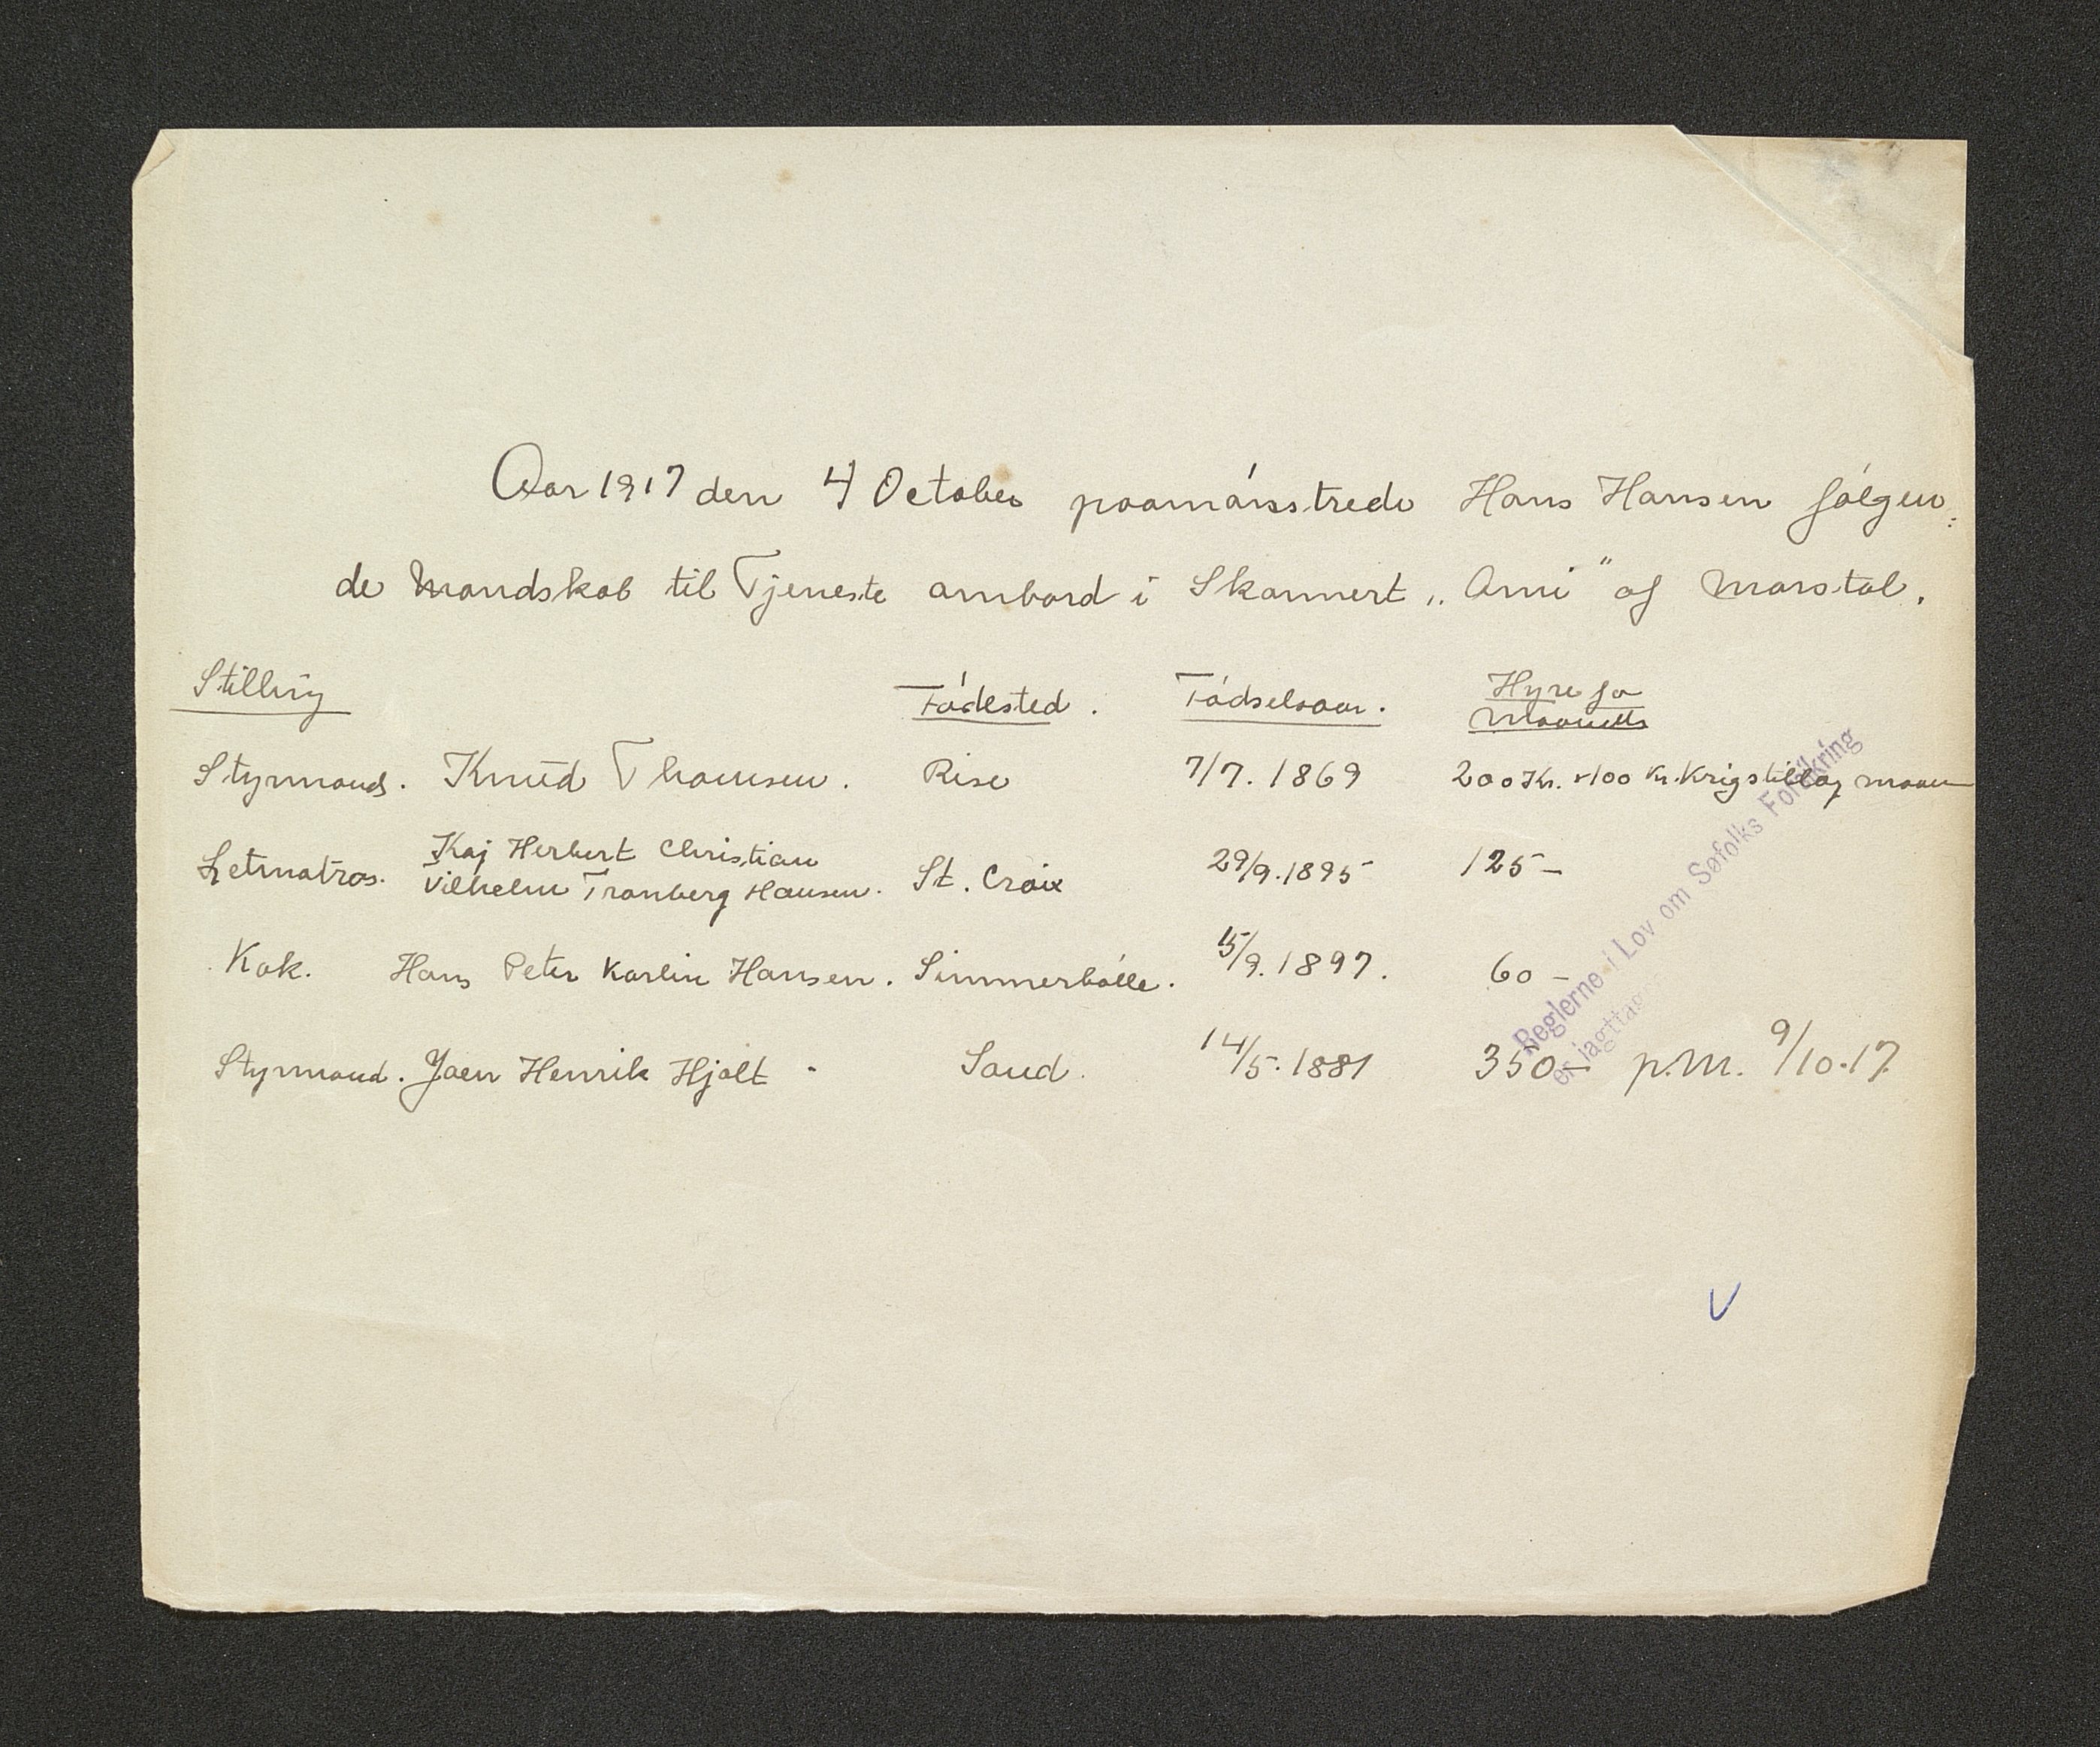 Aar 1917 den 4 October paamónstrede Hans Hansen fólgen:
de Mandskab til Tjeneste ombord i Skonnert „Ami" af Marstal.
Stilling Fódested. Fódselsaar. Hyre pr
Maaned
Styrmand. Knud Thomsen. Rise 7/7. 1869 200 Kr. +100 Kr. Krigstillæg maan
Letmatros. Kaj Herbert Christian
Vilhelm Tranberg Hansen. St. Croix 29/9. 1895 125 –
Kok. Hans Peter Karlin Hansen. Simmerbólle. 15/9. 1897. 60 –
Styrmand. Jaen Henrik Hjolt - Sand. 14/5. 1881 350 – p.M. 9/10.17
Reglerne i Lov om Søfolks Forsikring
er iagttag
V